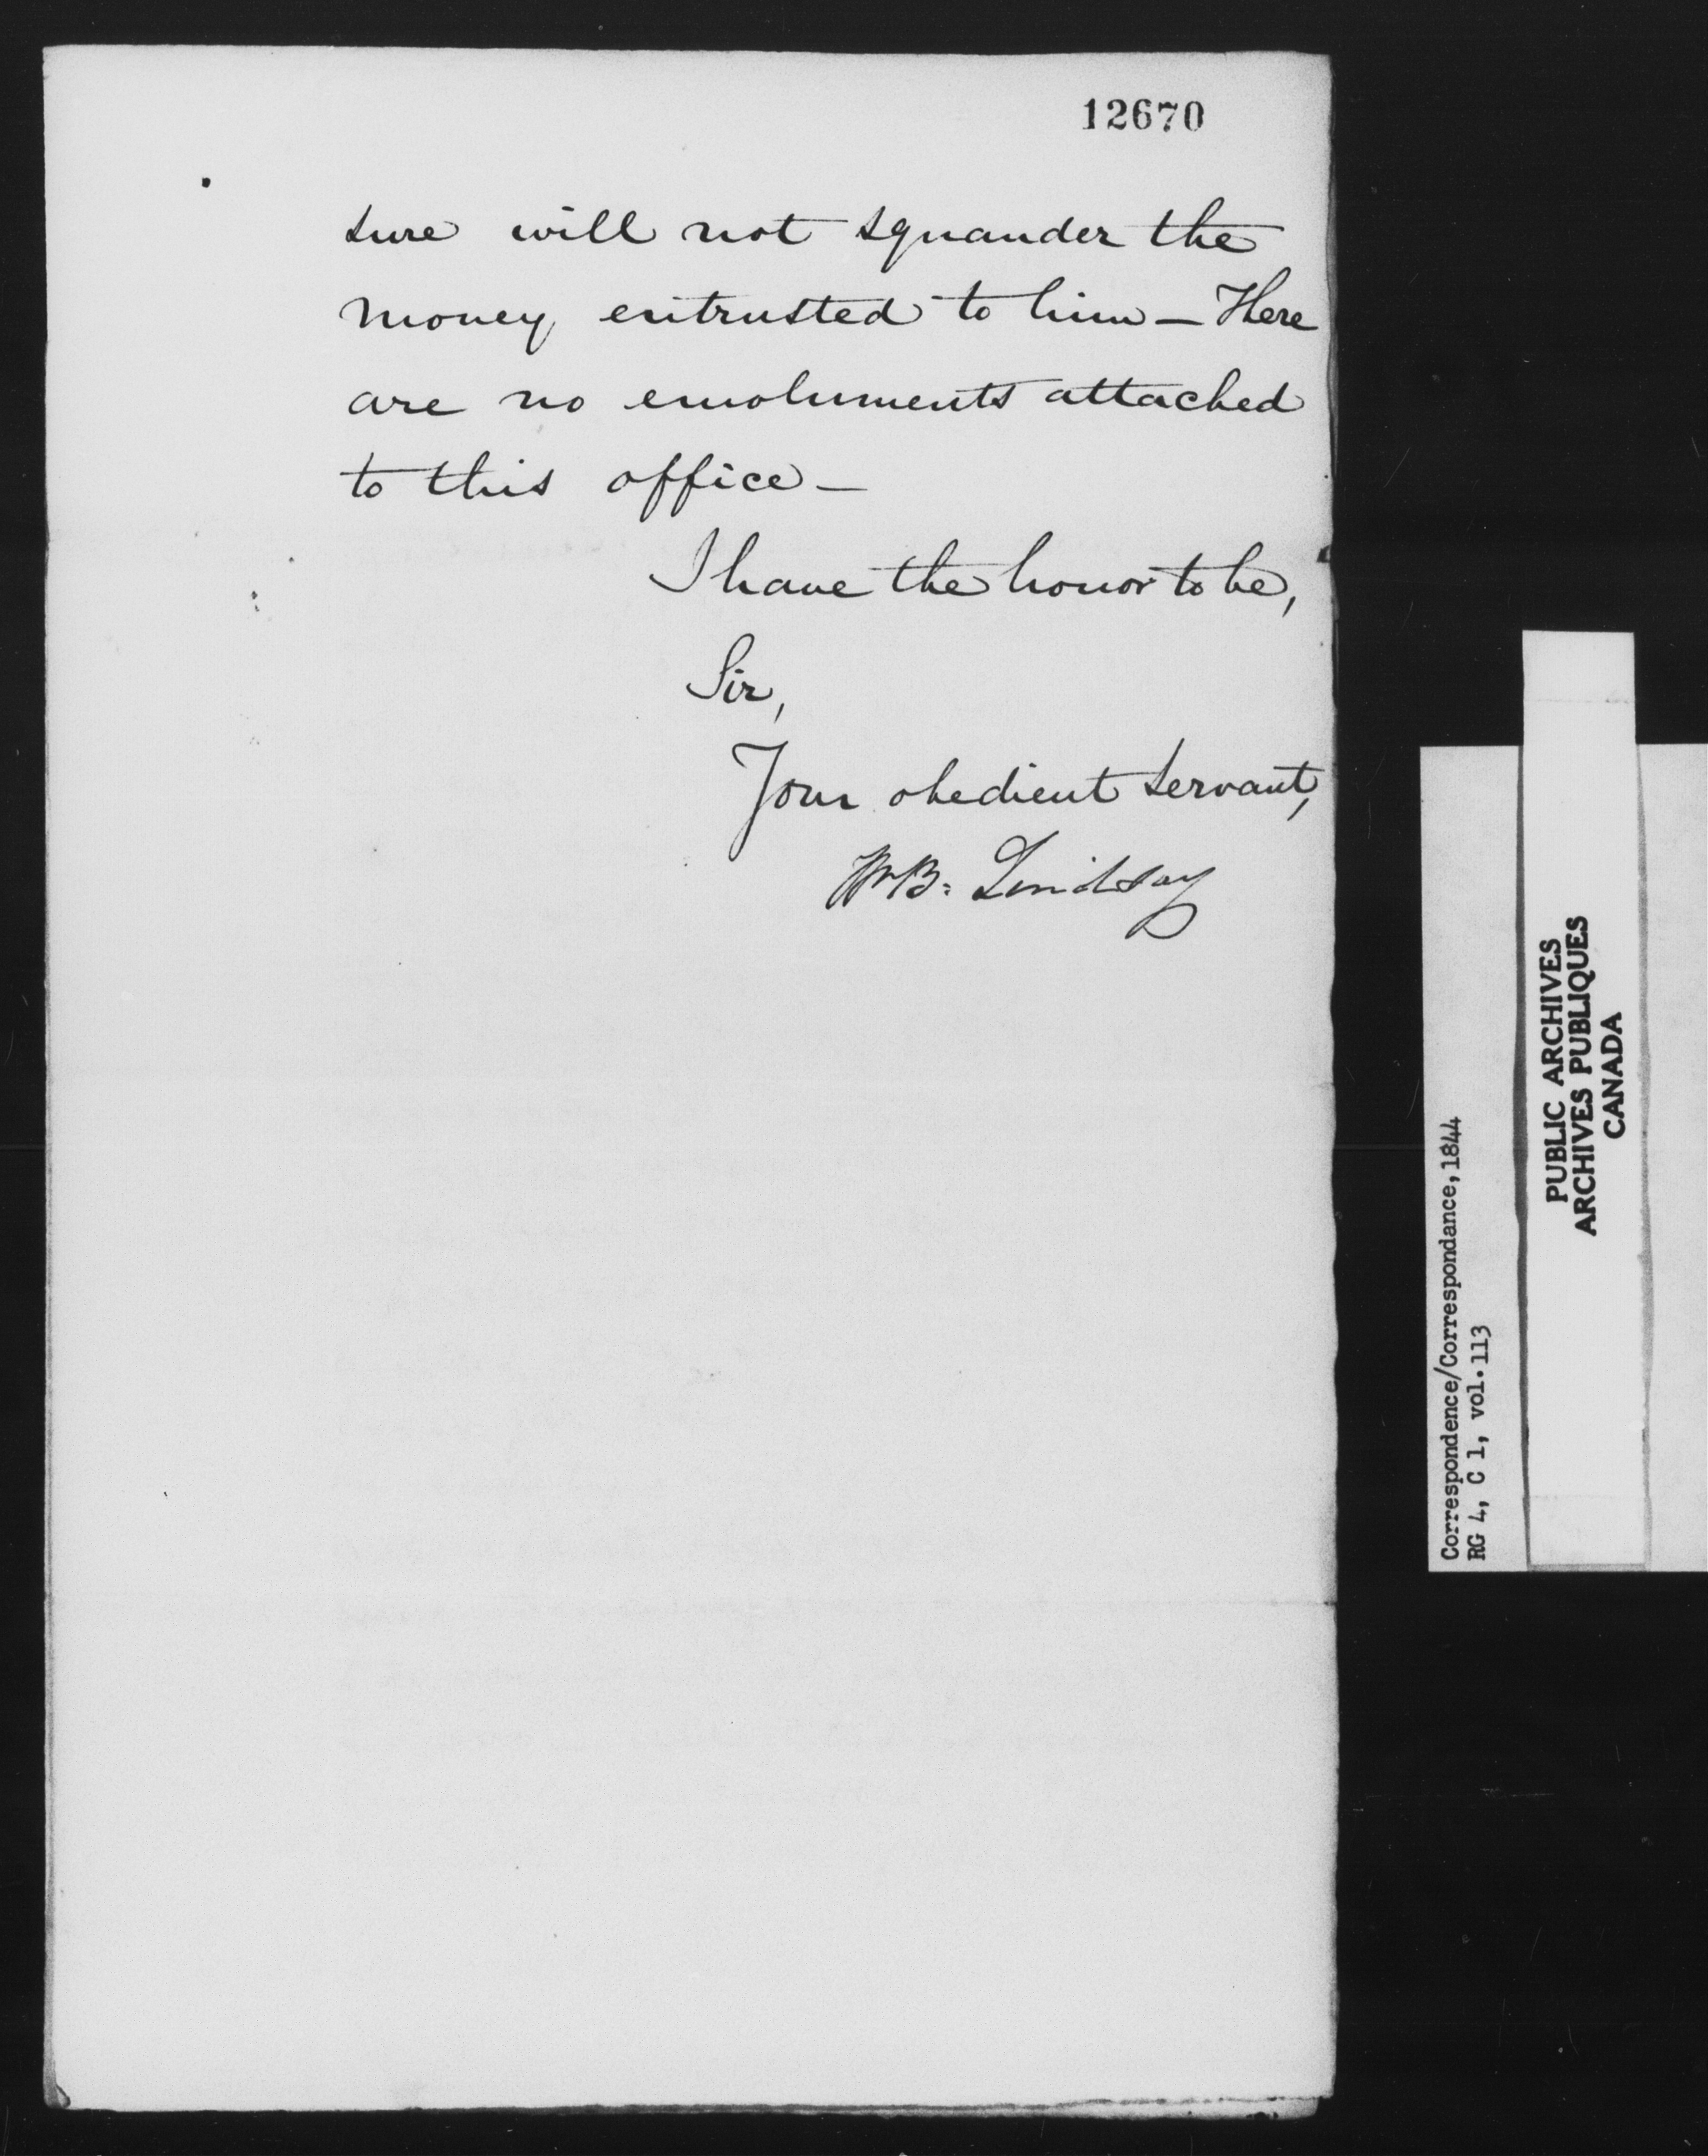 12670
sure will not squander the
money entrusted to him — Here
are no emoluments attached
to this office —
I have the honor to be,
Sir,
Your obedient servant,
Wm B: Lindsay
Correspondence/Correspondance, 1844
RG 4, C 1, vol. 113
PUBLIC ARCHIVES
ARCHIVES PUBLIQUES
CANADA